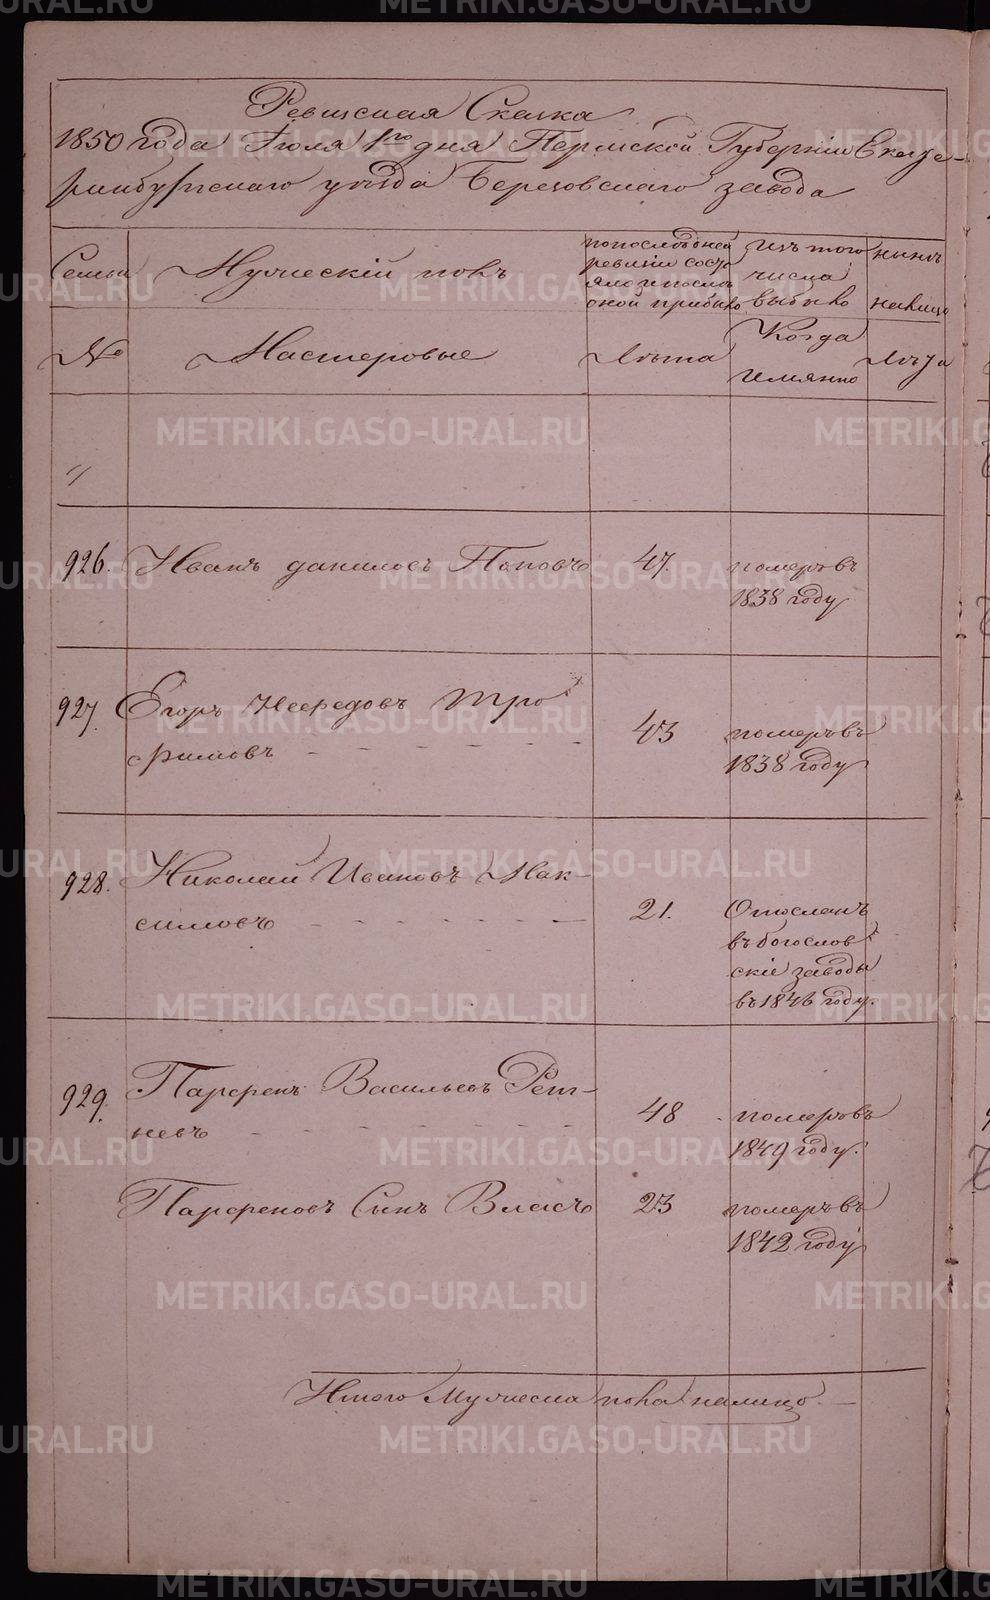 Ревизская Сказка
1850 года Іюля 1го дня Пермской Губерніи Екате-
ринбургскаго уезда Березовскаго завода
Семьи
Мужескій полъ
по последней
ревизіи состо
яло и после
оной прибыло
изъ того
числа
выбыло
ныне
налицо
№
Мастеровые
Лета
Когда
имянно
Лета
926. Иванъ Даниловъ Поповъ 47. померъ въ
1838 году
927. Егоръ Нефедовъ Тро
фимовъ 43 померъ въ
1838 году
928. Николай Ивановъ Мак-
симовъ 21. Отосланъ
въ богослов
скіе заводы
въ 1846 году.
929. Парфенъ Васильевъ Рет-
невъ 48 померъ въ
1849 году.
Парфеновъ Сынъ Власъ 23 померъ въ
1842 году
Итого Мужеска пола налицо —
METRIKI.GASO-URAL.RU